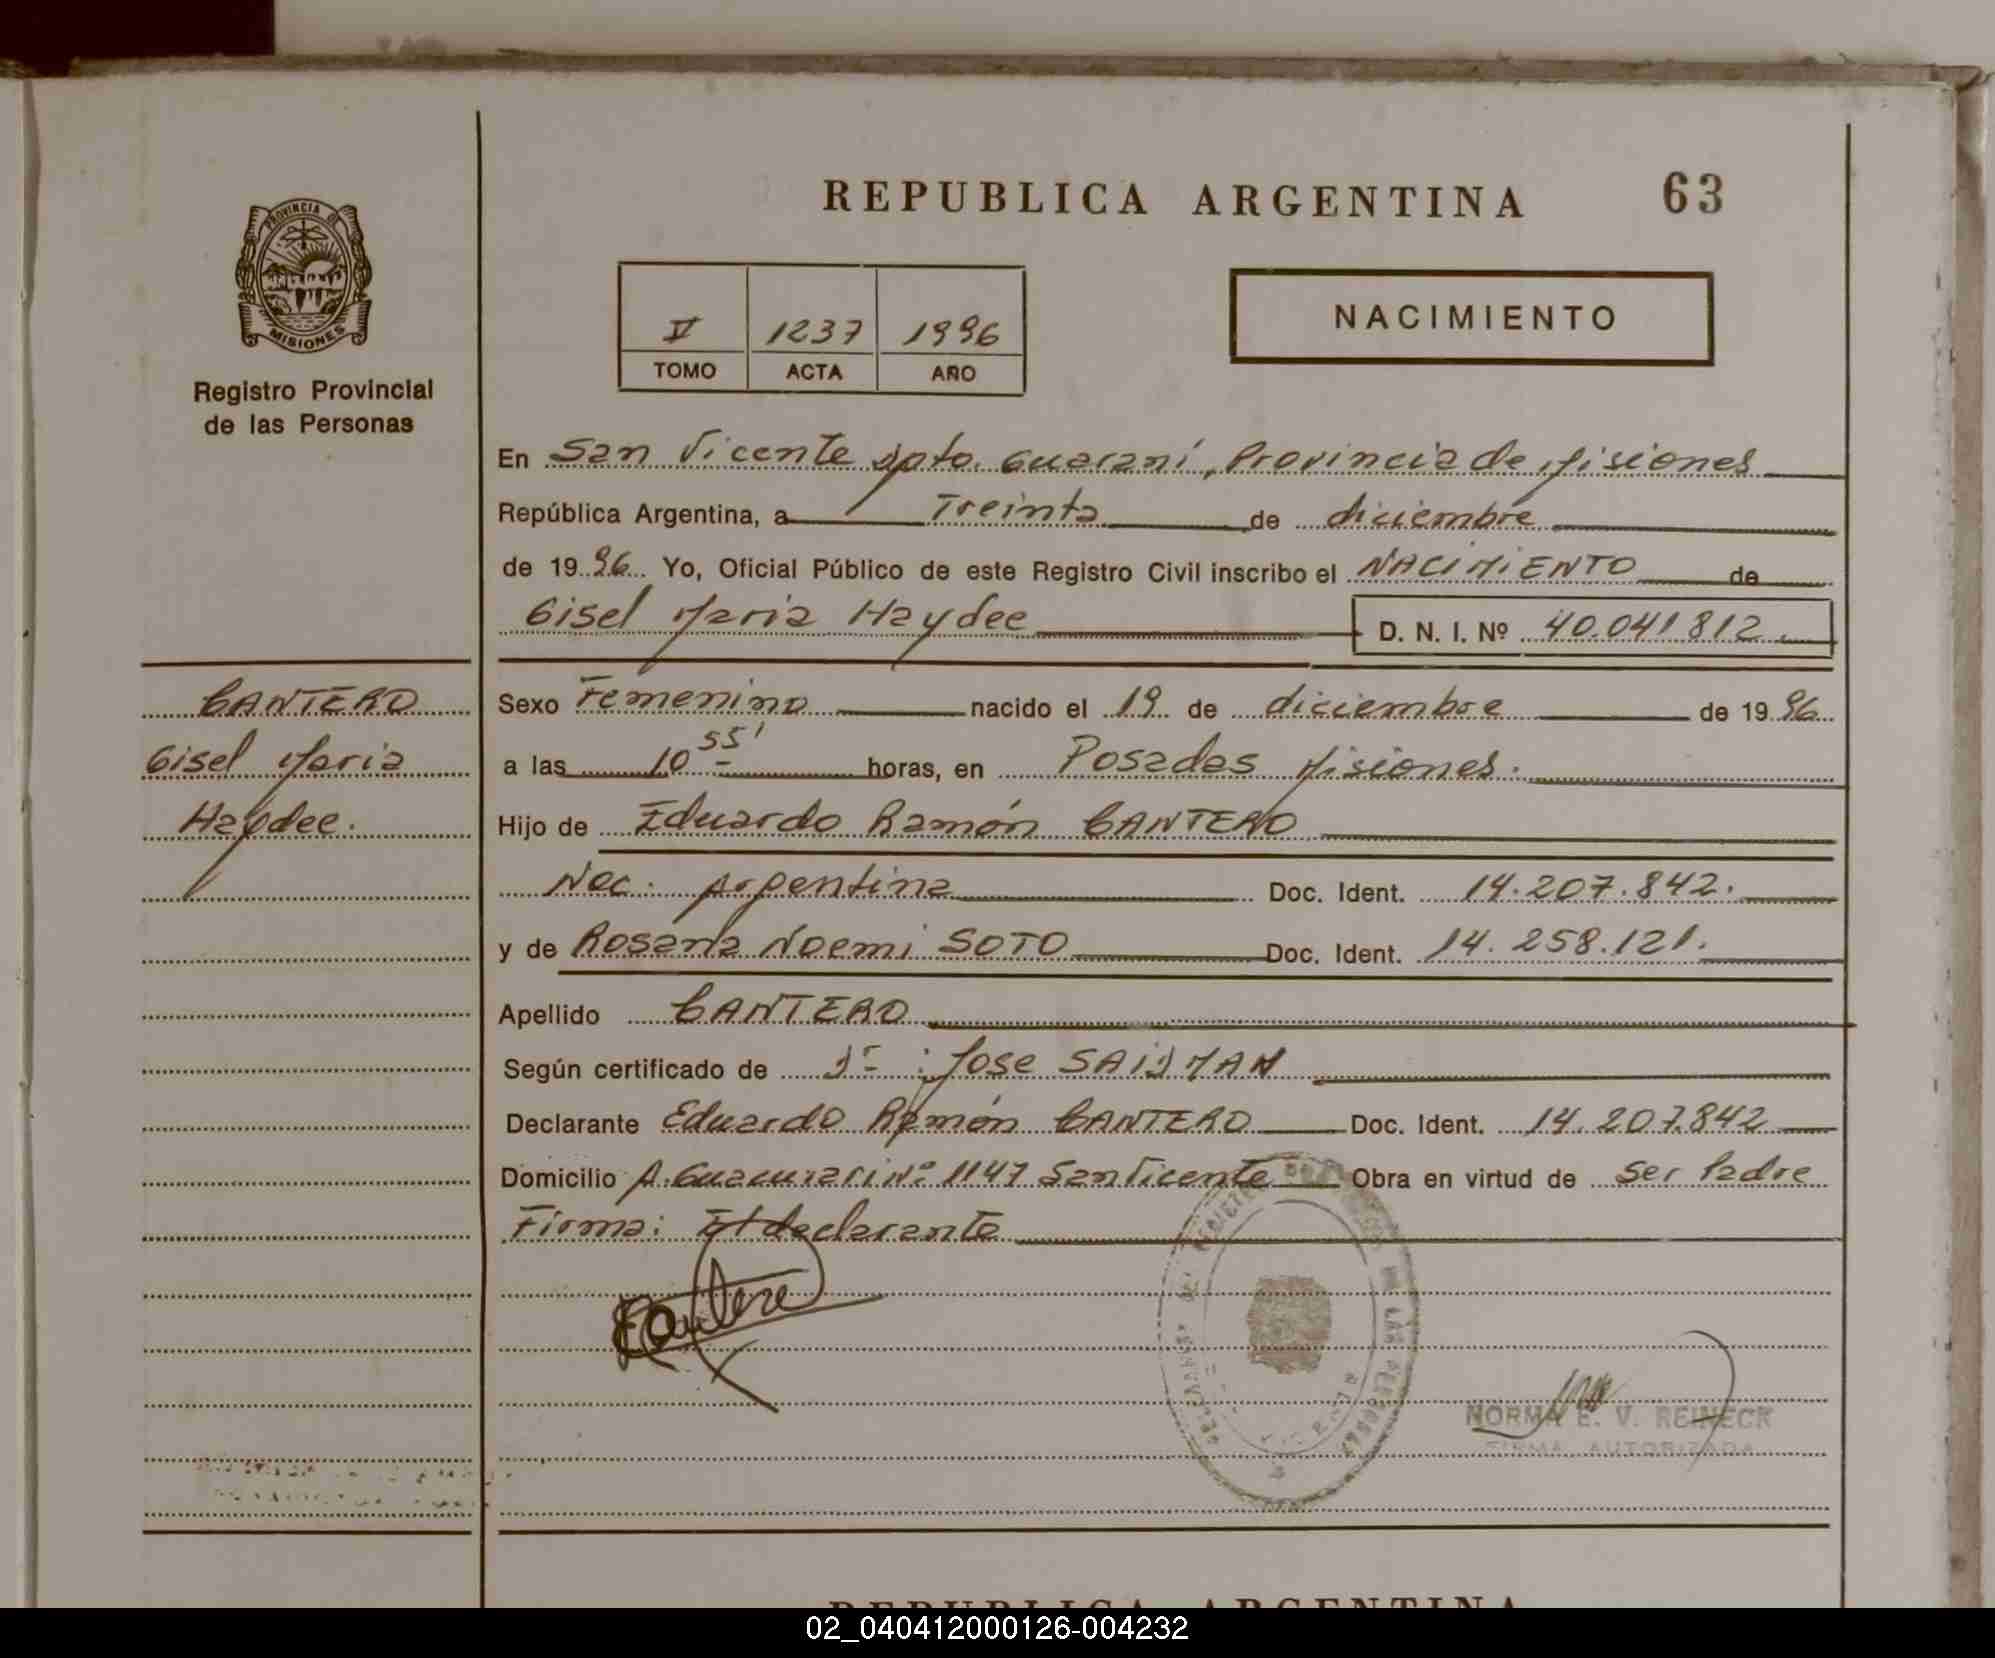 REPUBLICA ARGENTINA 63
PROVINCIA DE
MISIONES
Registro Provincial
de las Personas
V 1237 1996
TOMO ACTA AÑO
NACIMIENTO
En San Vicente Dpto. Guaraní, Provincia de Misiones
República Argentina, a Treinta de diciembre
de 19 96 Yo, Oficial Público de este Registro Civil inscribo el NACIMIENTO de
Gisel Maria Haydee D. N. I. Nº 40.041812
CANTERO
Gisel Maria
Haydee.
Sexo Femenino nacido el 19 de diciembre de 19 96
a las 10 55' horas, en Posadas Misiones.
Hijo de Eduardo Ramón CANTERO
Nac. Argentina Doc. Ident. 14.207.842.
y de Rosana Noemi SOTO Doc. Ident. 14.258.121.
Apellido CANTERO
Según certificado de Jose SAIDMAN
Declarante Eduardo Ramón CANTERO Doc. Ident. 14.207.842
Domicilio A. Guacurari Nº 1147 San Vicente Obra en virtud de Ser Padre
Firma: El declarante
Cantero
NORMA E. V. REINECK
FIRMA AUTORIZADA
REPUBLICA ARGENTINA
02_040412000126-004232